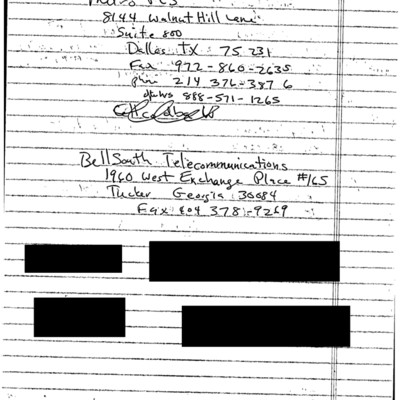 8144 Walnut Hill Lane
Suite 800
Dallas TX 75231
Fax 972-860-2635
phn 214 376-3876
888-571-1265
BellSouth Telecommunications
1960 West Exchange Place #165
Tucker Georgia 30084
Fax 404 378-9269